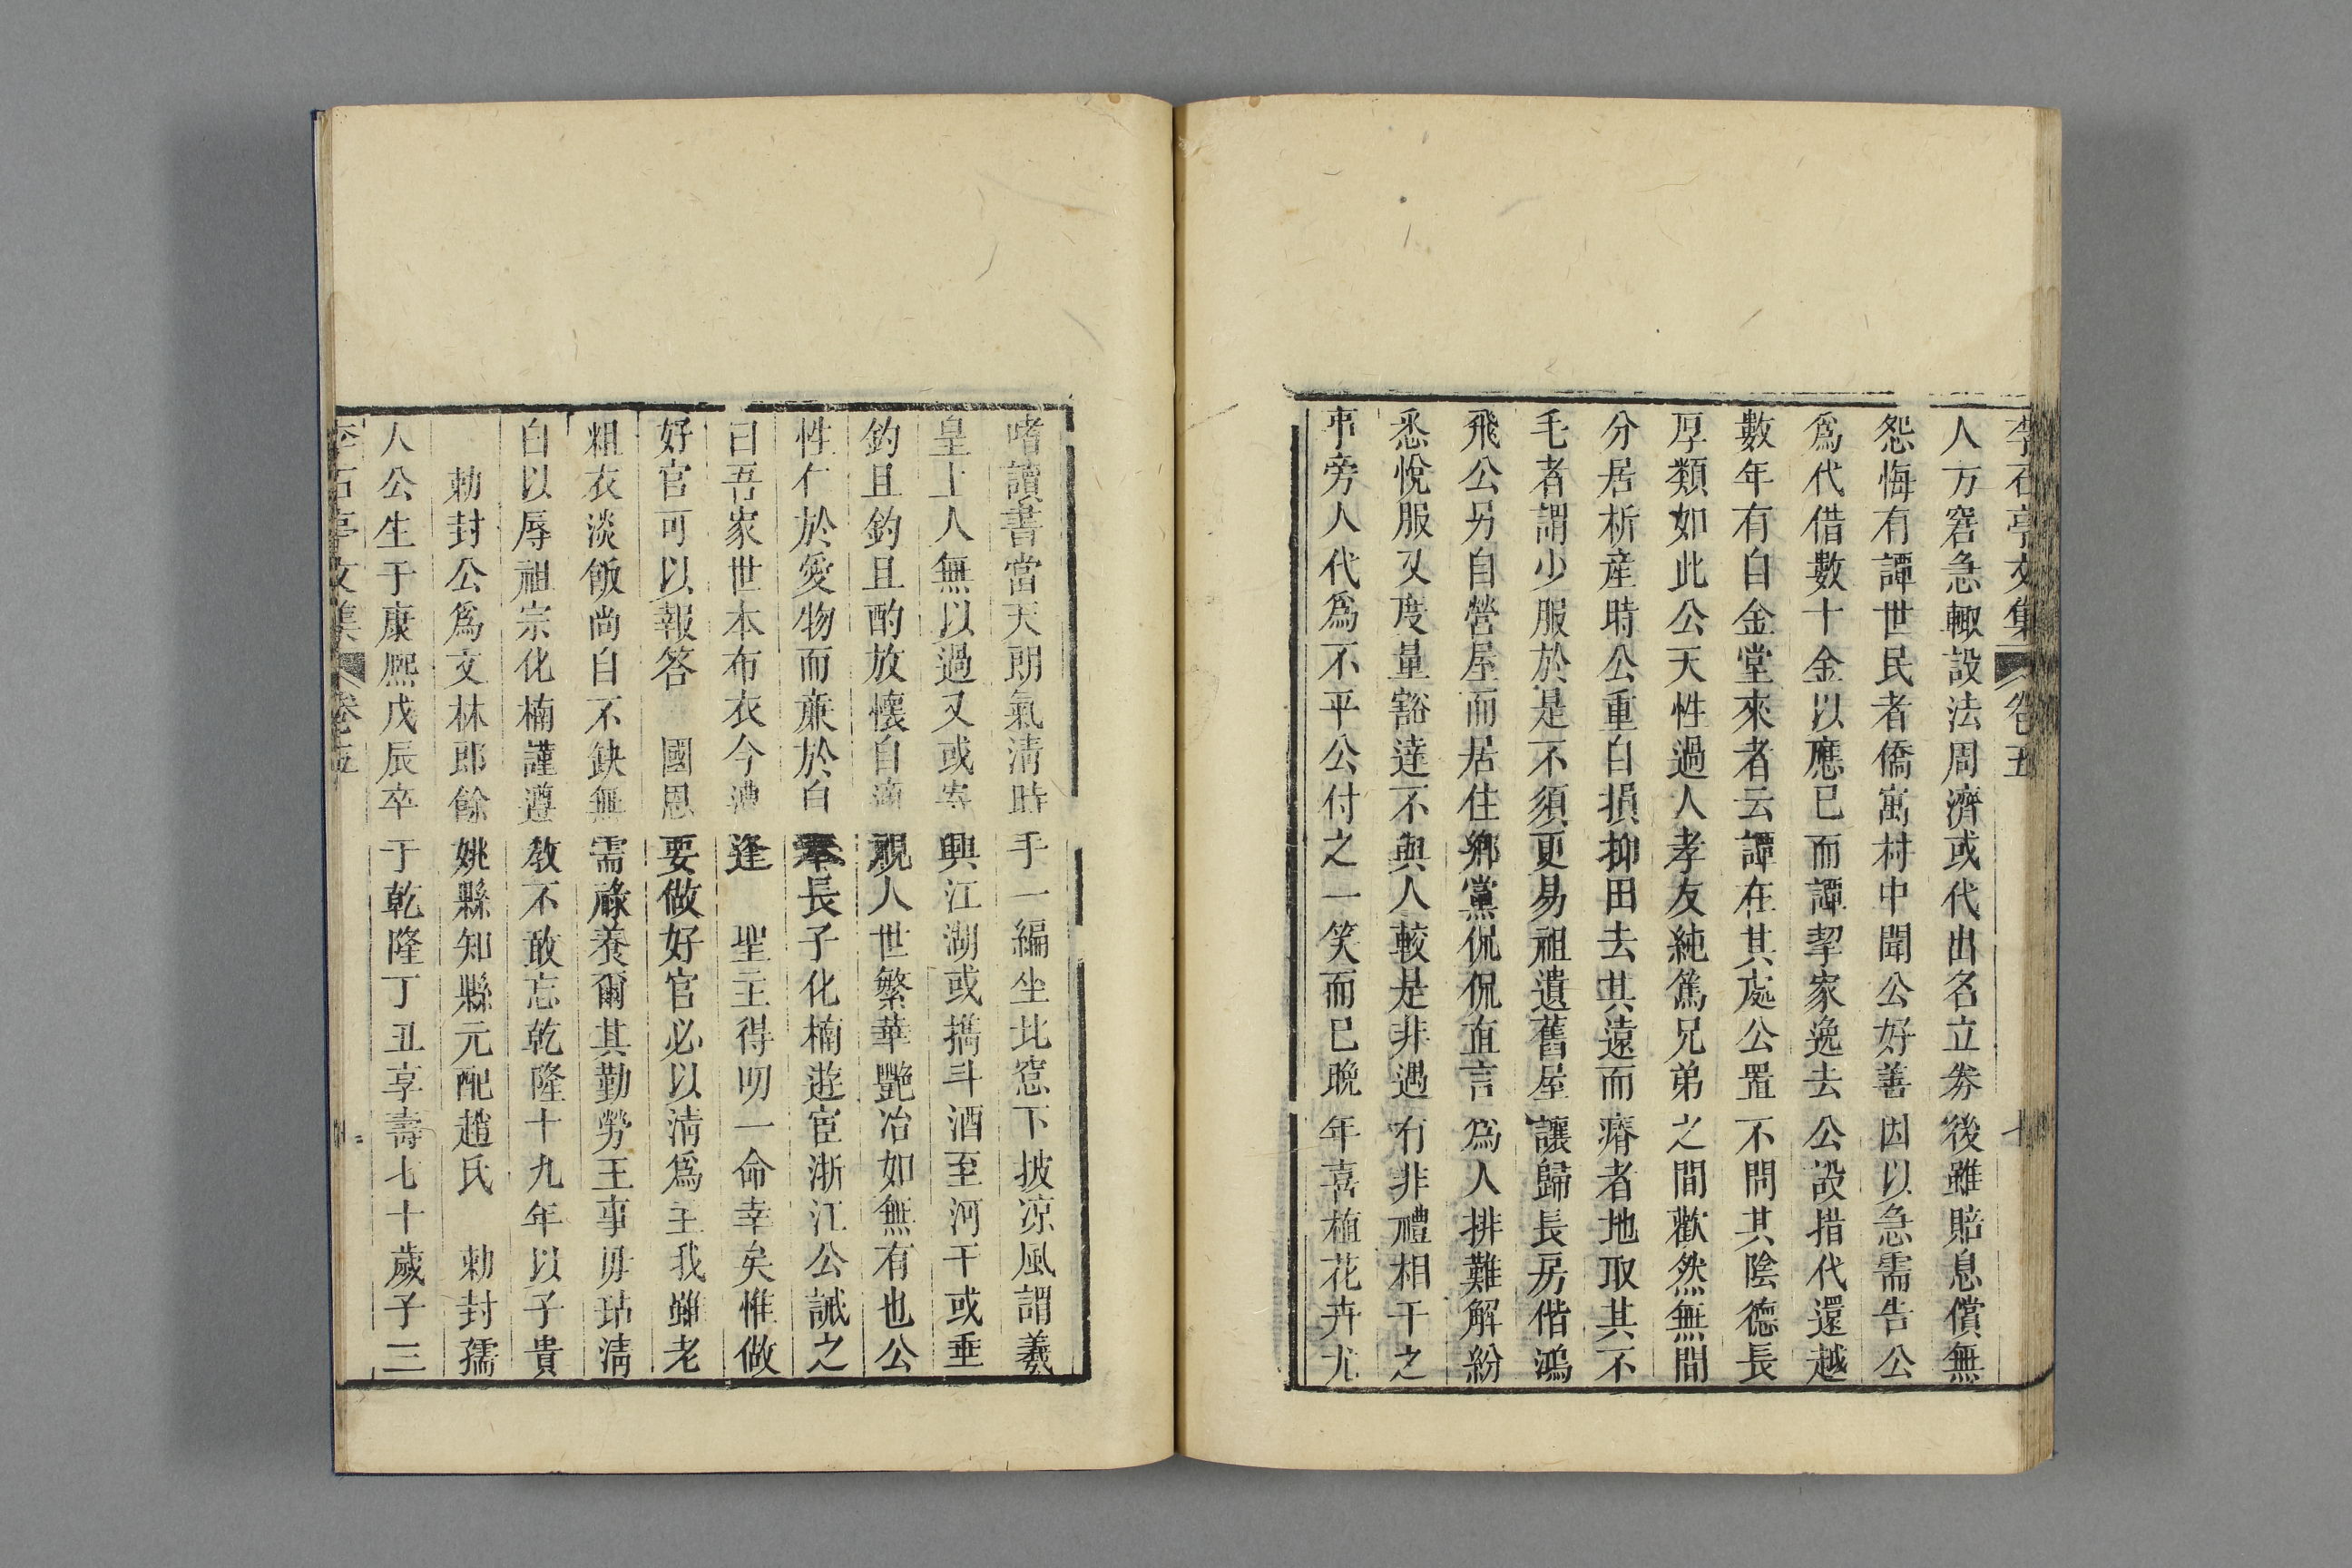 李石亭文集 卷五 十
人方窘急輙設法周濟或代出名立劵後雖賠息償無
怨悔有譚世民者僑寓村中聞公好善因以急需告公
爲代借數十金以應已而譚挈家逸去公設措代還越
數年有白金堂來者云譚在其處公置不問其陰德長
厚類如此公天性過人孝友純篤兄弟之間歡然無間
分居析産時公重自損抑田去其遠而瘠者地取其不
毛者謂少服於是不須更易祖遺舊屋讓歸長房偕鴻
飛公另自營屋而居住鄕黨侃侃直言爲人排難解紛
悉悅服又度量豁達不與人較是非遇有非禮相干之
事旁人代爲不平公付之一笑而已晩年喜植花卉尤
嗜讀書當天朗氣清時手一編坐北窓下披凉風謂羲
皇上人無以過又或寄興江湖或攜斗酒至河干或垂
釣且釣且酌放懷自適視人世繁華艷冶如無有也公
性仁於愛物而亷於自奉長子化楠遊宦浙江公誡之
曰吾家世本布衣今遭逢　聖主得叨一命幸矣惟做
好官可以報答　國恩要做好官必以淸爲主我雖老
粗衣淡飯尚自不缺無需祿養爾其勤勞王事毋玷淸
白以辱祖宗化楠謹遵敎不敢忘乾隆十九年以子貴
勅封公爲文林郎餘姚縣知縣元配趙氏　勅封孺
人公生于康熙戊辰卒于乾隆丁丑享壽七十歲子三
李石亭文集 卷五